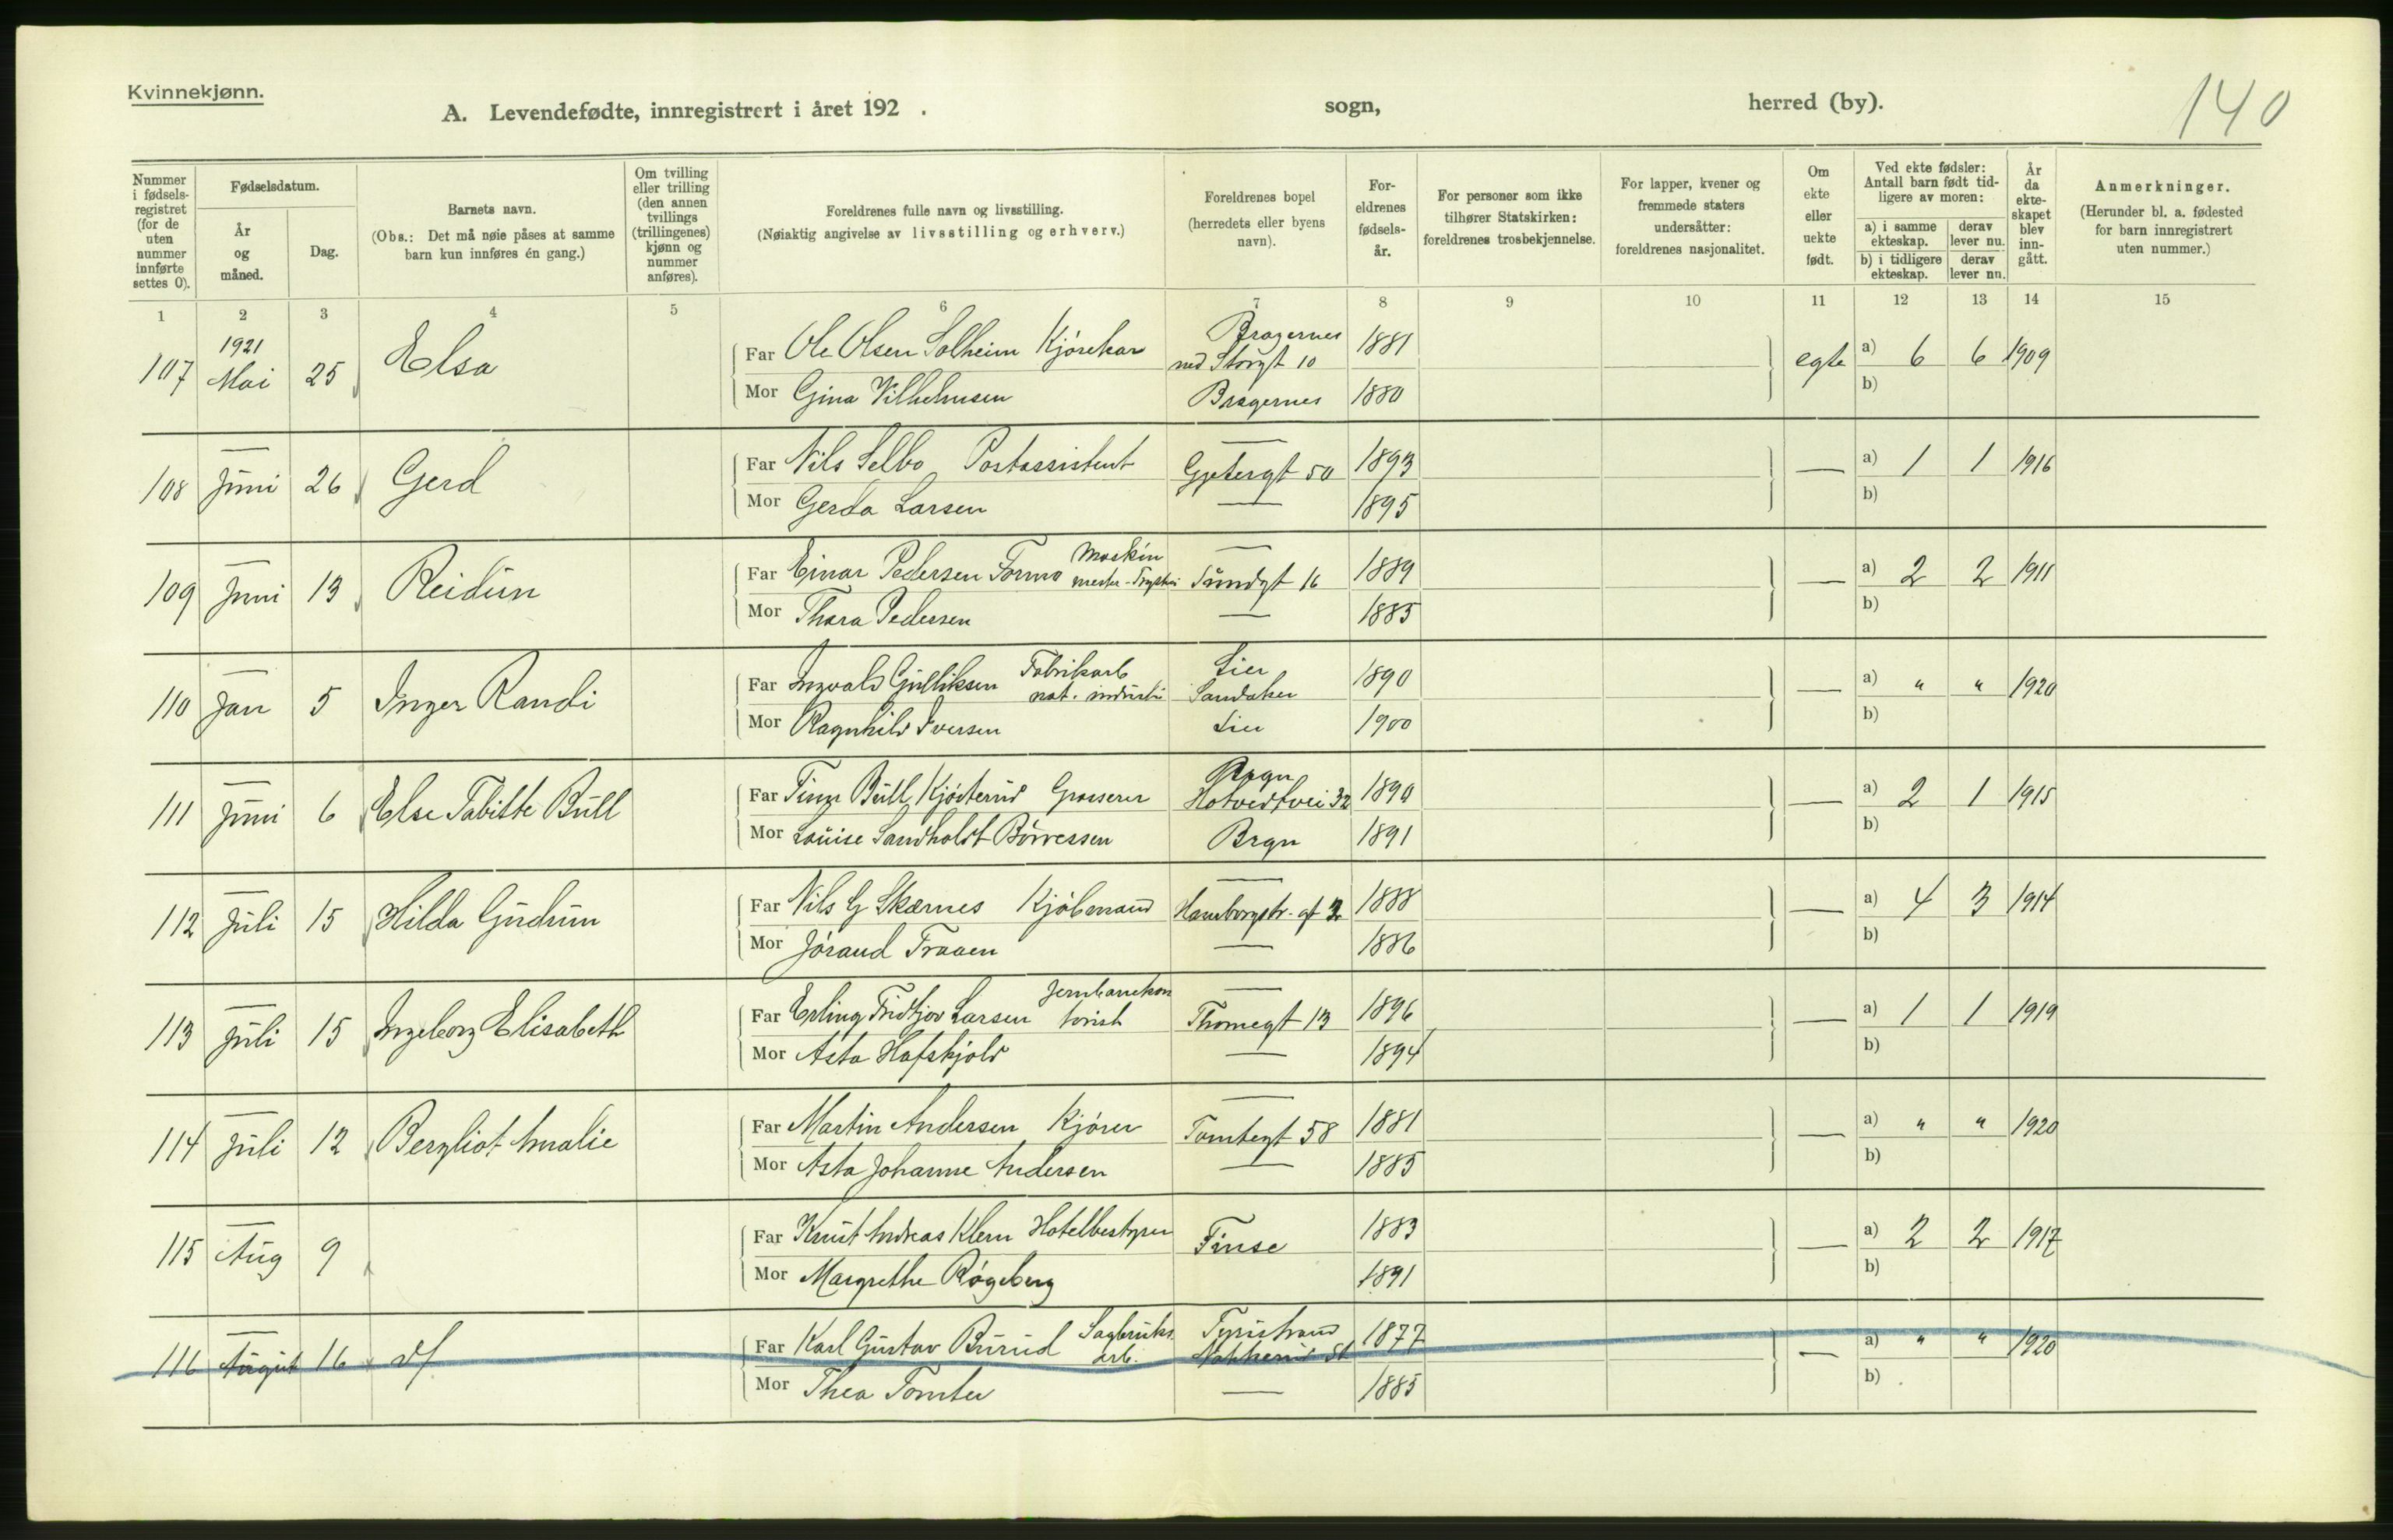 Kvinnekjønn.
A. Levendefødte, innregistrert i året 192 . sogn, herred (by).
140
Nummer i fødsels-registret (for de uten nummer innførte settes 0).
Fødselsdatum.
År og måned.
Dag.
Barnets navn.
(Obs.: Det må nøie påses at samme barn kun innføres én gang.)
Om tvilling eller trilling (den annen tvillings (trillingenes) kjønn og nummer anføres).
Foreldrenes fulle navn og livsstilling.
(Nøiaktig angivelse av livsstilling og erhverv.)
Foreldrenes bopel (herredets eller byens navn).
For-eldrenes fødsels-år.
For personer som ikke tilhører Statskirken: foreldrenes trosbekjennelse.
For lapper, kvener og fremmede staters undersåtter: foreldrenes nasjonalitet.
Om ekte eller uekte født.
Ved ekte fødsler: Antall barn født tid-ligere av moren:
a) i samme ekteskap. derav lever nu.
b) i tidligere ekteskap. derav lever nu.
År da ekte-skapet blev inn-gått.
Anmerkninger.
(Herunder bl. a. fødested for barn innregistrert uten nummer.)
1 2 3 4 5 6 7 8 9 10 11 12 13 14 15
1921 Bragernes
107 Mai 25 Elsa Far Ole Olsen Solheim Kjørekar ned Storgt 10 1881 egte a) 6 6 1909
Mor Gina Vilhelmsen Bragernes 1880 b)
108 Juni 26 Gerd Far Nils Selbo Postassistent 50 1893 — a) 1 1 1916
Mor Gerda Larsen — 1895 b)
Maskin
109 Juni 13 Reidun Far Einar Pedersen Formo mester Sundgt 16 1889 — a) 2 2 1911
Mor Thora Pedersen — 1885 b)
Fabrikarb Lier
110 Jan 5 Inger Randi Far Ingvald Gulliksen nat. industri Sandaker 1890 — a) " " 1920
Mor Ragnhild Iversen Lier 1900 b)
Bragn
111 Juni 6 Else Tabitte Bull Far Finn Bull Kjøsterud Grosserer Hotvedtvei 32 1890 — a) 2 1 1915
Mor Louise Sandholdt Børresen Bragn 1891 b)
112 Juli 15 Hilda Gudrun Far Nils G Skarnes Kjøbmand Hamborgstr. gt 1888 — a) 4 3 1914
Mor Jórand Traaen — 1886 b)
Jernbanekon
113 Juli 15 Ingeborg Elisabeth Far Erling Fridtjov Larsen torist Thomegt 13 1896 — a) 1 1 1919
Mor Asta Hafskjold — 1894 b)
114 Juli 12 Bergliot Amalie Far Martin Andersen Kjører Tomtegt 58 1881 — a) " " 1920
Mor Asta Johanne Andersen — 1885 b)
115 Aug 9 Far Knut Andreas Klem Hotelbestyrer Finse 1883 — a) 2 2 1917
Mor Margrethe Røgeberg 1891 b)
Sagbruks Tyristrand
116 August 16 Far Karl Gustav Burud arb. Nakkerud St 1877 — a) " " 1920
Mor Thea Tomter — 1885 b)